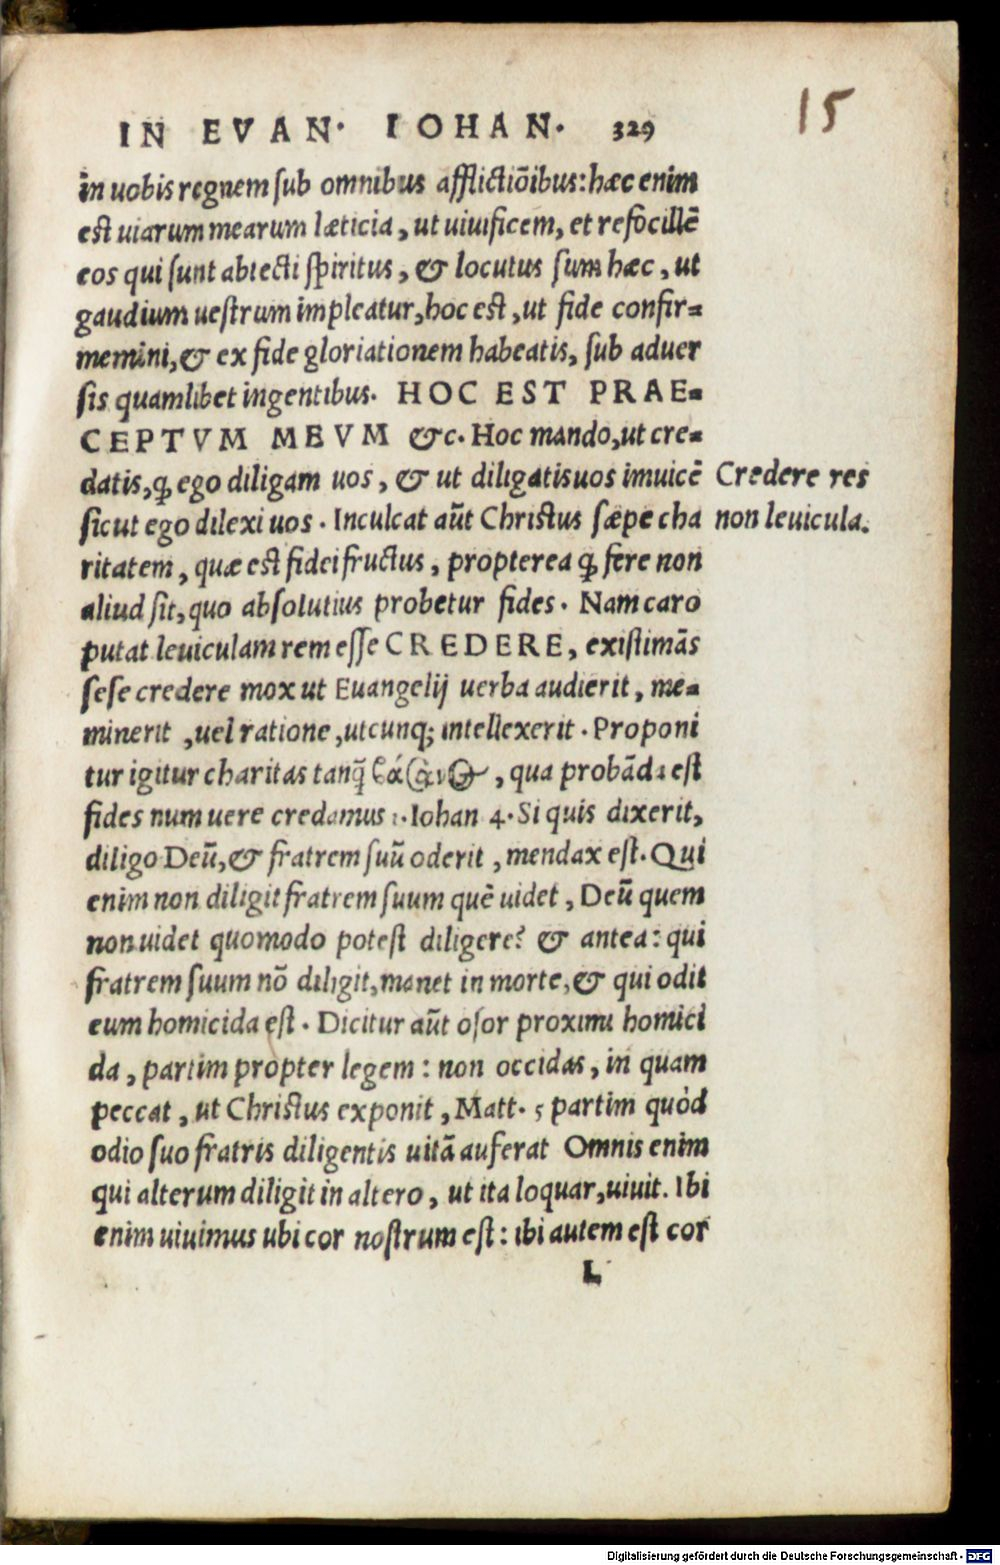 15
IN EVAN. IOHAN. 329
in uobis regnem sub omnibus afflictiõibus: hæc enim
est uiarum mearum læticia, ut uiuificem, et refocillẽ
eos qui sunt abiecti spiritus, & locutus sum hæc, ut
gaudium uestrum impleatur, hoc est, ut fide confir-
memini, & ex fide gloriationem habeatis, sub aduer
sis quamlibet ingentibus. HOC EST PRAE-
CEPTVM MEVM &c. Hoc mando, ut cre-
datis, ꝙ ego diligam uos, & ut diligatis uos inuicẽ
sicut ego dilexi uos. Inculcat aũt Christus sæpe cha
ritatem, quæ est fidei fructus, propterea ꝙ fere non
aliud sit, quo absolutius probetur fides. Nam caro
putat leuiculam rem esse CREDERE, existimãs
sese credere mox ut Euangelij uerba audierit, me-
minerit, uel ratione, utcunq; intellexerit. Proponi
tur igitur charitas tanq̃ βάσανος, qua probãda est
fides num uere credamus 1. Iohan 4. Si quis dixerit,
diligo Deũ, & fratrem suũ oderit, mendax est. Qui
enim non diligit fratrem suum quẽ uidet, Deũ quem
non uidet quomodo potest diligere? & antea: qui
fratrem suum nõ diligit, manet in morte, & qui odit
eum homicida est. Dicitur aũt osor proximi homici
da, partim propter legem: non occidas, in quam
peccat, ut Christus exponit, Matt. 5 partim quòd
odio suo fratris diligentis uitã auferat Omnis enim
qui alterum diligit in altero, ut ita loquar, uiuit. Ibi
enim uiuimus ubi cor nostrum est: ibi autem est cor
L
Credere res
non leuicula.
Digitalisierung gefördert durch die Deutsche Forschungsgemeinschaft - DFG